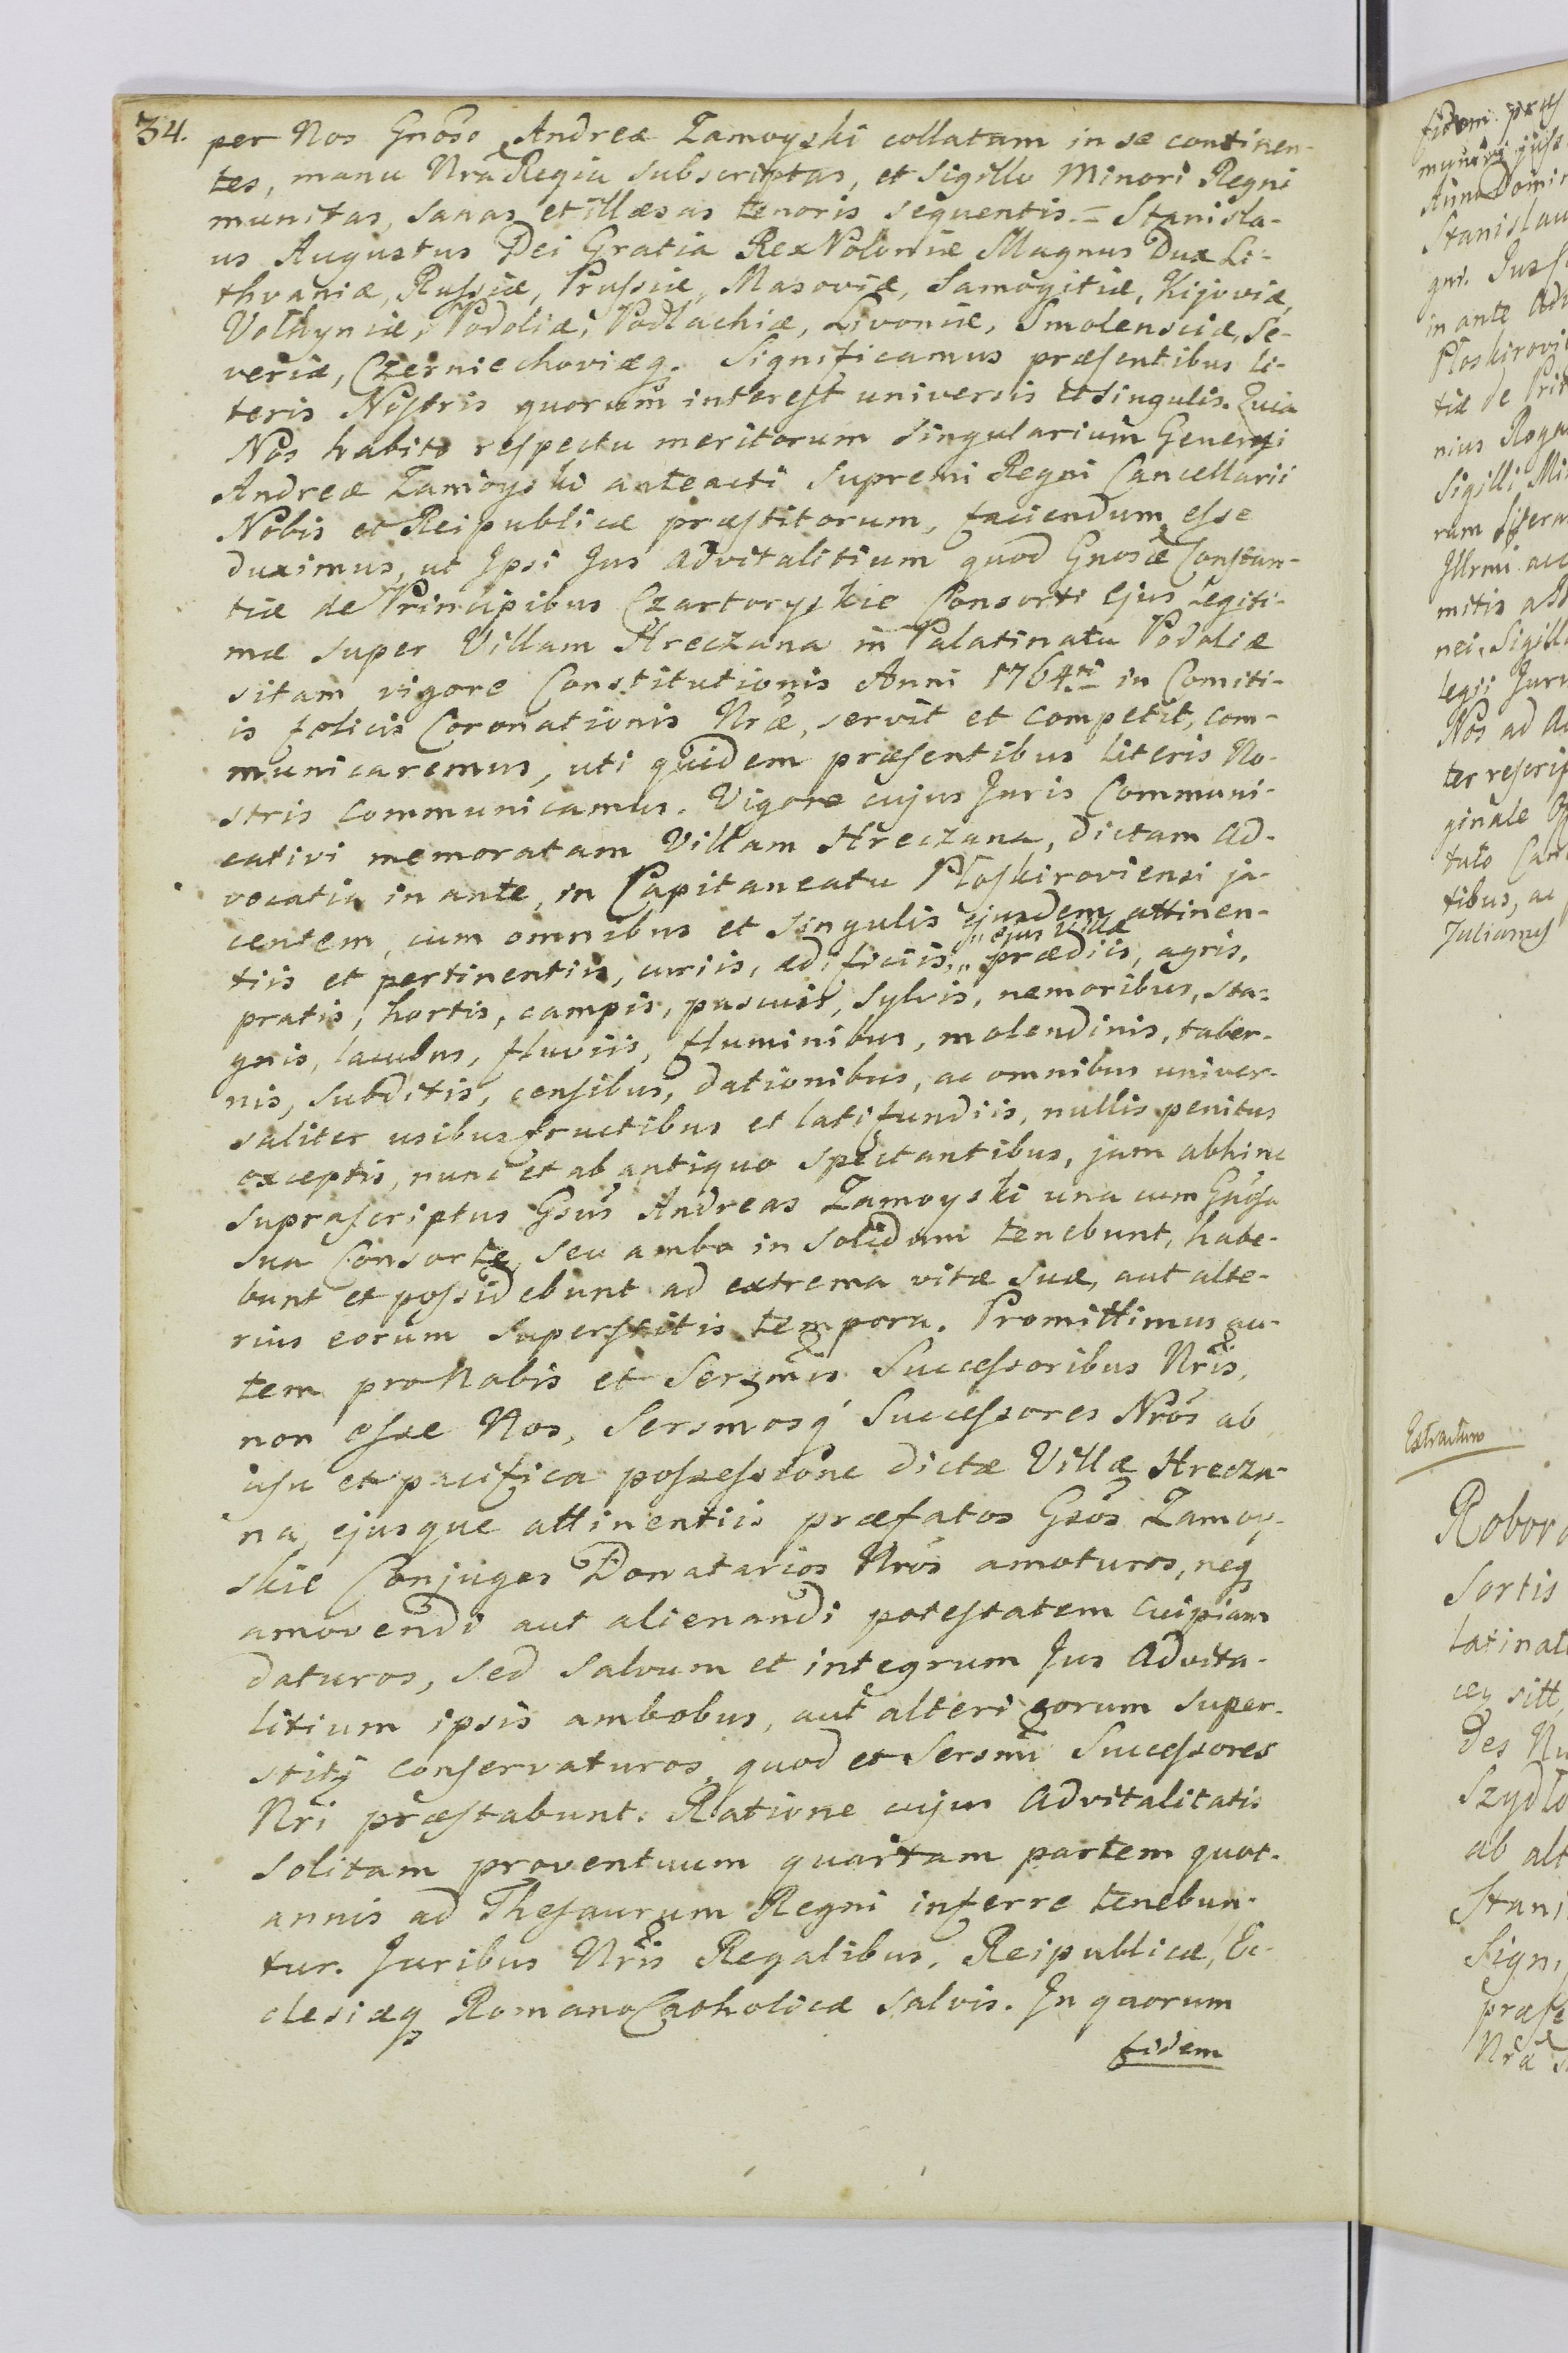 34.
per Nos Gnoso Andreæ Zamoyski collatam in se continen-
tes, manu Nrã Regia subscriptas, et sigillo Minori Regni
munitas, sanas et illæsas tenoris sequentis.= Stanisla-
us Augustus Dei Gratia Rex Poloniæ Magnus Dux Li-
thvaniæ, Russiæ, Prussiæ, Masoviæ, Samogitiæ, Kijoviæ,
Volhyniæ, Podoliæ, Podlachiæ, Livoniæ, Smolensciæ, Se-
veriæ, Czerniechoviæq. Significamus præsentibus li-
teris Nostris quorum interest universis et singulis. Quia
Nos habito respectu meritorum singularium Generosi
Andreæ Zamoyski anteacti Supremi Regni Cancellarii
Nobis et Reipublicæ præstitorum, faciendum esse
duximus, ut Ipsi Jus advitalitium quod Gnosæ Constan-
tiæ de Principibus Czartoryskie Consorti ejus legiti-
mæ super Villam Hreczana in Palatinatu Podoliæ
sitam vigore Constitutionis Anni 1764ti in Comiti-
is felicis Coronationis Nræ, servit et competit, com-
municaremus, uti quidem præsentibus literis No-
stris communicamus. Vigore cujus Juris Communi-
cativi memoratam Villam Hreczana, dictam Ad-
vocatia in ante, in Capitaneatu Płoskiroviensi ja-
centem, cum omnibus et singulis ejusdem attinen-
tiis et pertinentiis, curiis, ædificiis, „ejus Villæ „ prædiis, agris,
pratis, hortis, campis, pascuis, sylvis, nemoribus, sta-
gnis, lacubus, fluviis, fluminibus, molendinis, taber-
nis, subditis, censibus, dationibus, ac omnibus univer-
saliter usibusfructibus et latifundiis, nullis penitus
exceptis, nunc et ab antiquo spectantibus, jam abhinc
suprascriptus Gsus Andreas Zamoyski una cum Gnosa
sua Consorte, seu ambo in solidum tenebunt, habe-
bunt et possidebunt ad extrema vitæ suæ, aut alte-
rius eorum superstitis tempora. Promittimus au-
tem pro Nobis et Sersmis Successoribus Nris,
non esse Nos, Sersmosq Successores Nros ab
usu et pacifica possessione dictæ Villæ Hrecza-
na, ejusque attinentiis præfatos Gsos Zamoy-
skie Conjuges Donatarios Nros amoturos, neq
amovendi aut alienandi potestatem cuipiam
daturos, sed salvum et integrum Jus Advita-
litium ipsis ambobus, aut alteri eorum super-
stiti conservaturos, quod et Sersmi Successores
Nri præstabunt. Ratione cujus Advitalitatis
solitam proventuum quartam partem quot-
annis ad Thesaurum Regni inferre tenebun-
tur. Juribus Nris Regalibus, Reipublicæ, Ec-
clesiæq Romano Catholicæ salvis. In quorum
fidem
Stanislau
in ante Adv
tiæ de Pri
nius Roga
Sigilli Mi
Nos ad
Extractum
Robor
Sortis
latinat
cey sitt
des Nu
Szydło
ab alt
Stani
Sign
præse
Nra